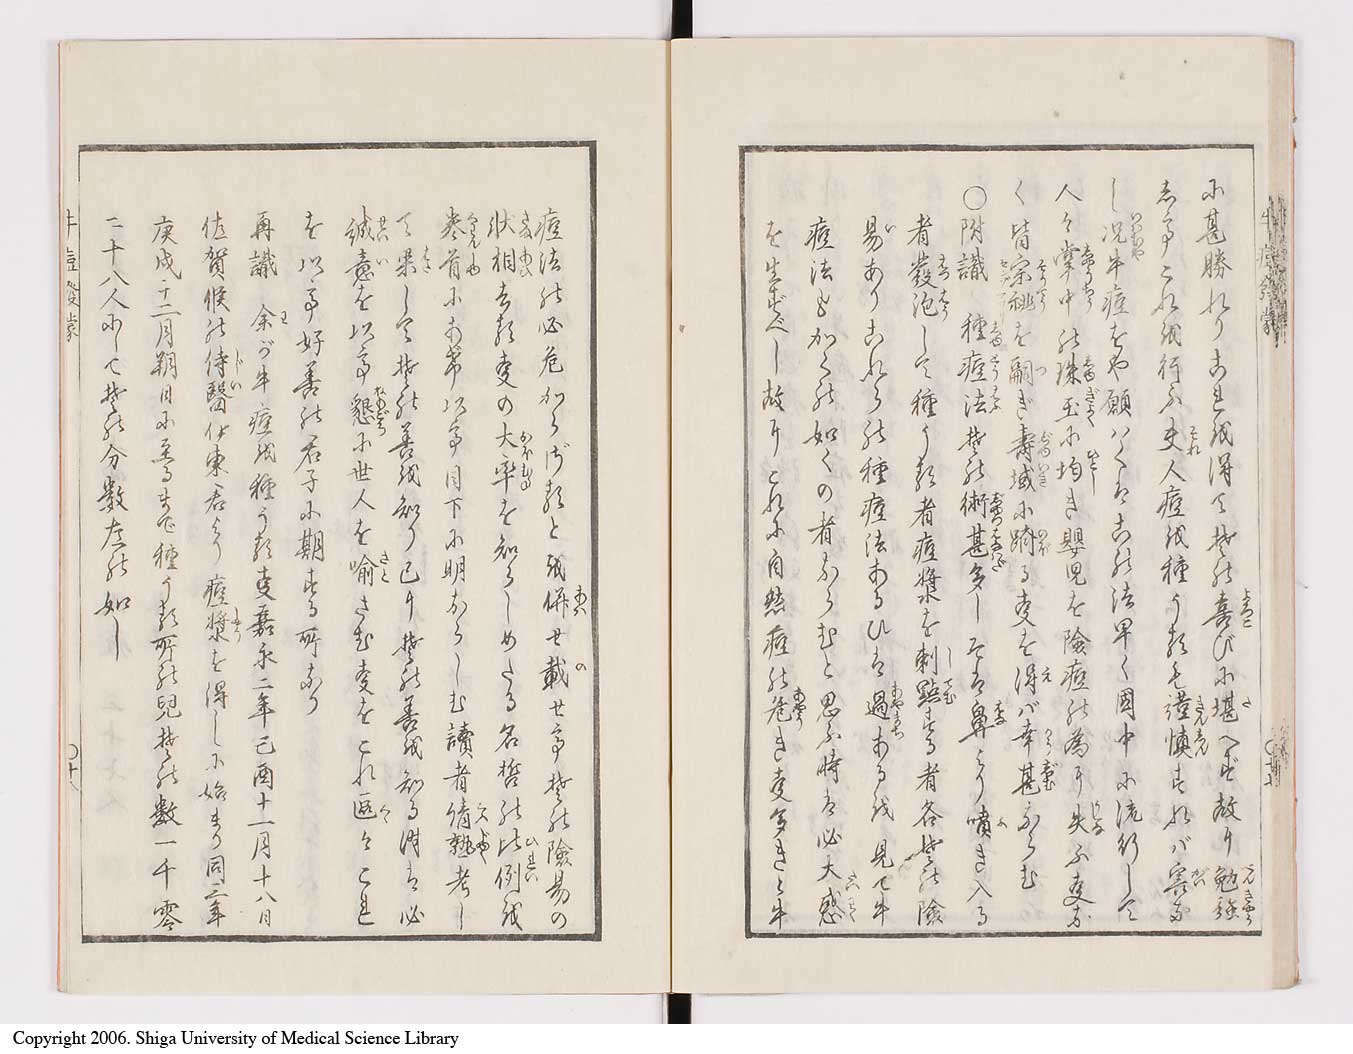 に甚勝れりこれを得て其の喜びに堪へず故に勉強
してこれを行ふ夫人痘を種うるも謹慎すれバ害な
し况牛痘をや願ハくは此の法早く國中に流行して
人々掌中の珠玉に均き嬰児を險痘の為に失ふ事な
く皆宗祧を嗣ぎ壽域に躋る事を得バ幸甚ならむ
〇附識 種痘法其の術甚多しそは鼻より噴き入る
者發泡して種うる者痘漿を刺點する者各其の險
易ありこれらの種痘法あるひは過あるを見て牛
痘法もかくの如くの者ならむと思ふ時は必大惑
を生ずべし故にこれに自然痘の危き事多きと牛
痘法の必危からざるとを併せ載せて其の險易の
状相去る事の大率を知らしめたる名哲の比例を
巻首にあげ以て目下に明ならしむ讀者情熟考し
て果して其の善を知り已に其の善を知る時は必
誠意を以て懇に世人を喩さむ事をこれ區々これ
を以て好善の君子に期する所なり
再識 余が牛痘を種うる事嘉永二年己酉十一月十八日
佐賀候の侍醫伊東君より痘漿を得しに始まり同三年
庚戌十二月朔日に至るまで種うる所の児其の数一千零
二十八人にして其の分数左の如し
牛痘發蒙
〇十八
Copyright 2006. Shiga University of Medical Science Library